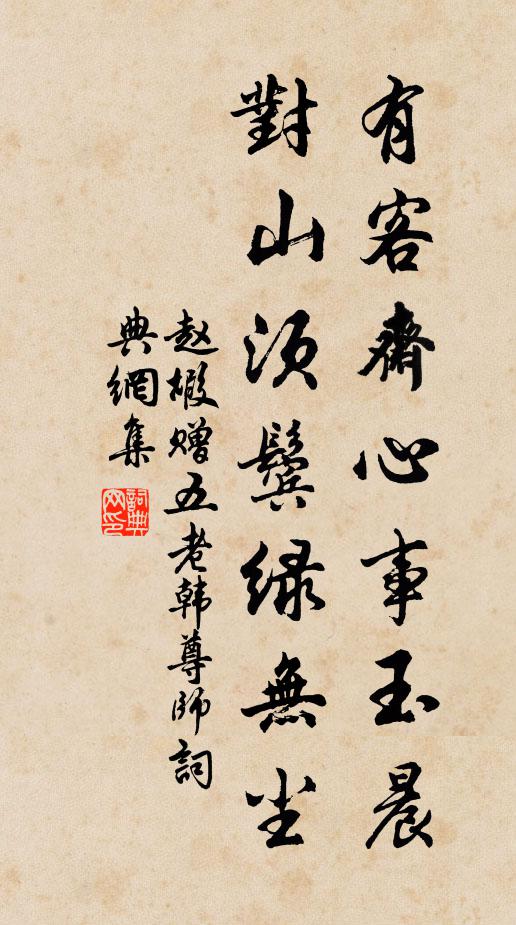 有客齋心事玉晨
對山須鬢綠無塵
赵嘏赠五老韩尊师詞
典網集
詞典
网印